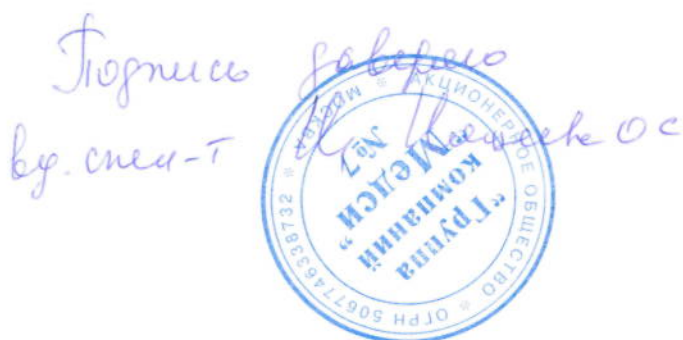 Подпись заверяю
вед. спец-т
ОС
АКЦИОНЕРНОЕ ОБЩЕСТВО * ОГРН 5067746338732 * МОСКВА *
"Группа
компаний
"Медси"
№ 7